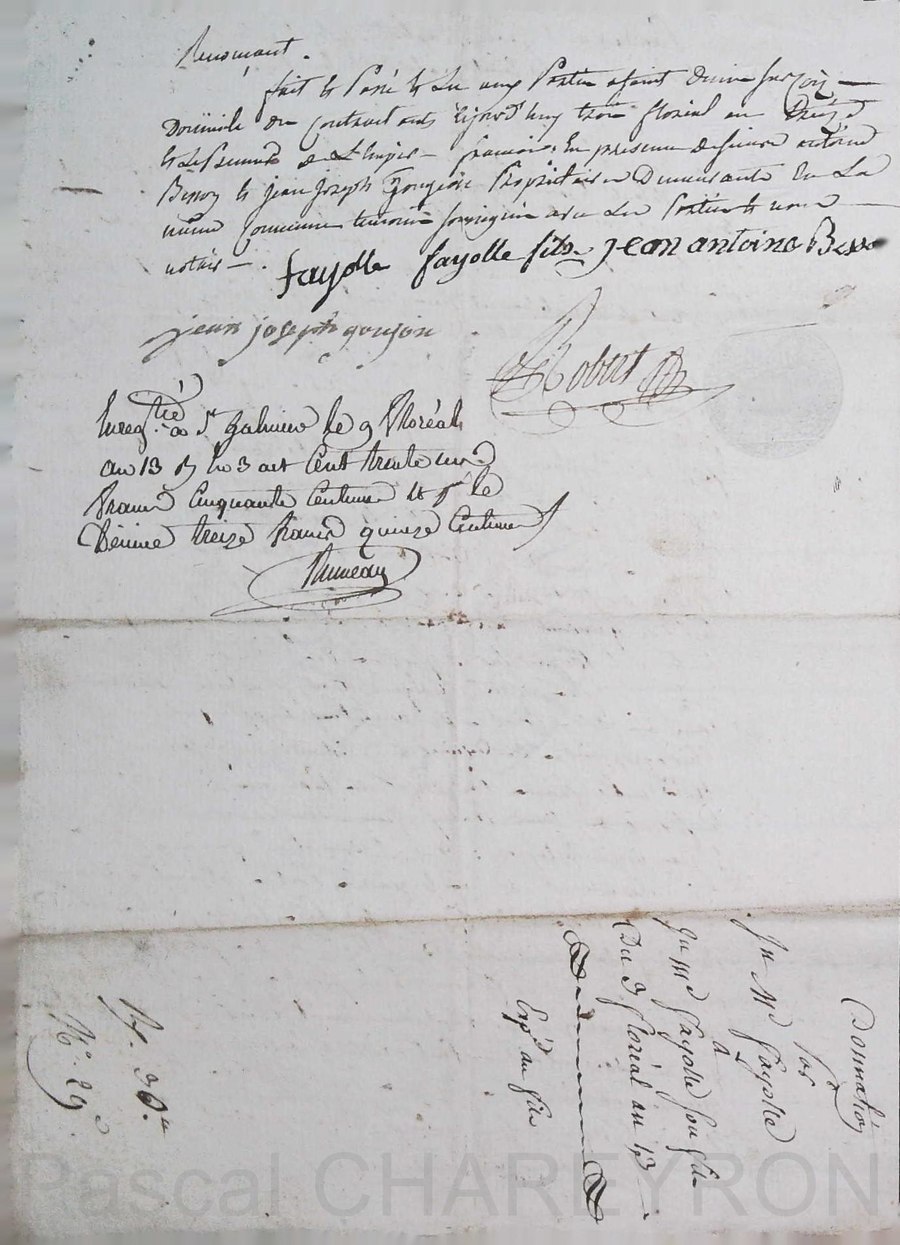 Renonçant.
fait et Passé et Lu aux Parties
Domicile des Contractants le jourd'huy trois floréal an treize
et Le premier de L'Empire français. En présence de sieurs antoine
Besson et jean joseph Goujon Propriétaires Demeurants En La
même Commune témoins soussignés avec Les Parties et nous
notaire.
fayolle fayolle fils jean antoine Besso
jean joseph goujon
Robert
Enreg.tré à S.t Galmier le 9 floréal
an 13 f.o 3 Cent trente un
francs Cinquante Centimes et p.r le
Décime treize francs quinze Centimes
Donnation
par
Jn M.e fayolle
a
Jn M.e fayolle son fils
Du 3 floréal an 13
Exp.d au fils
N.o 29
Pascal CHAREYRON